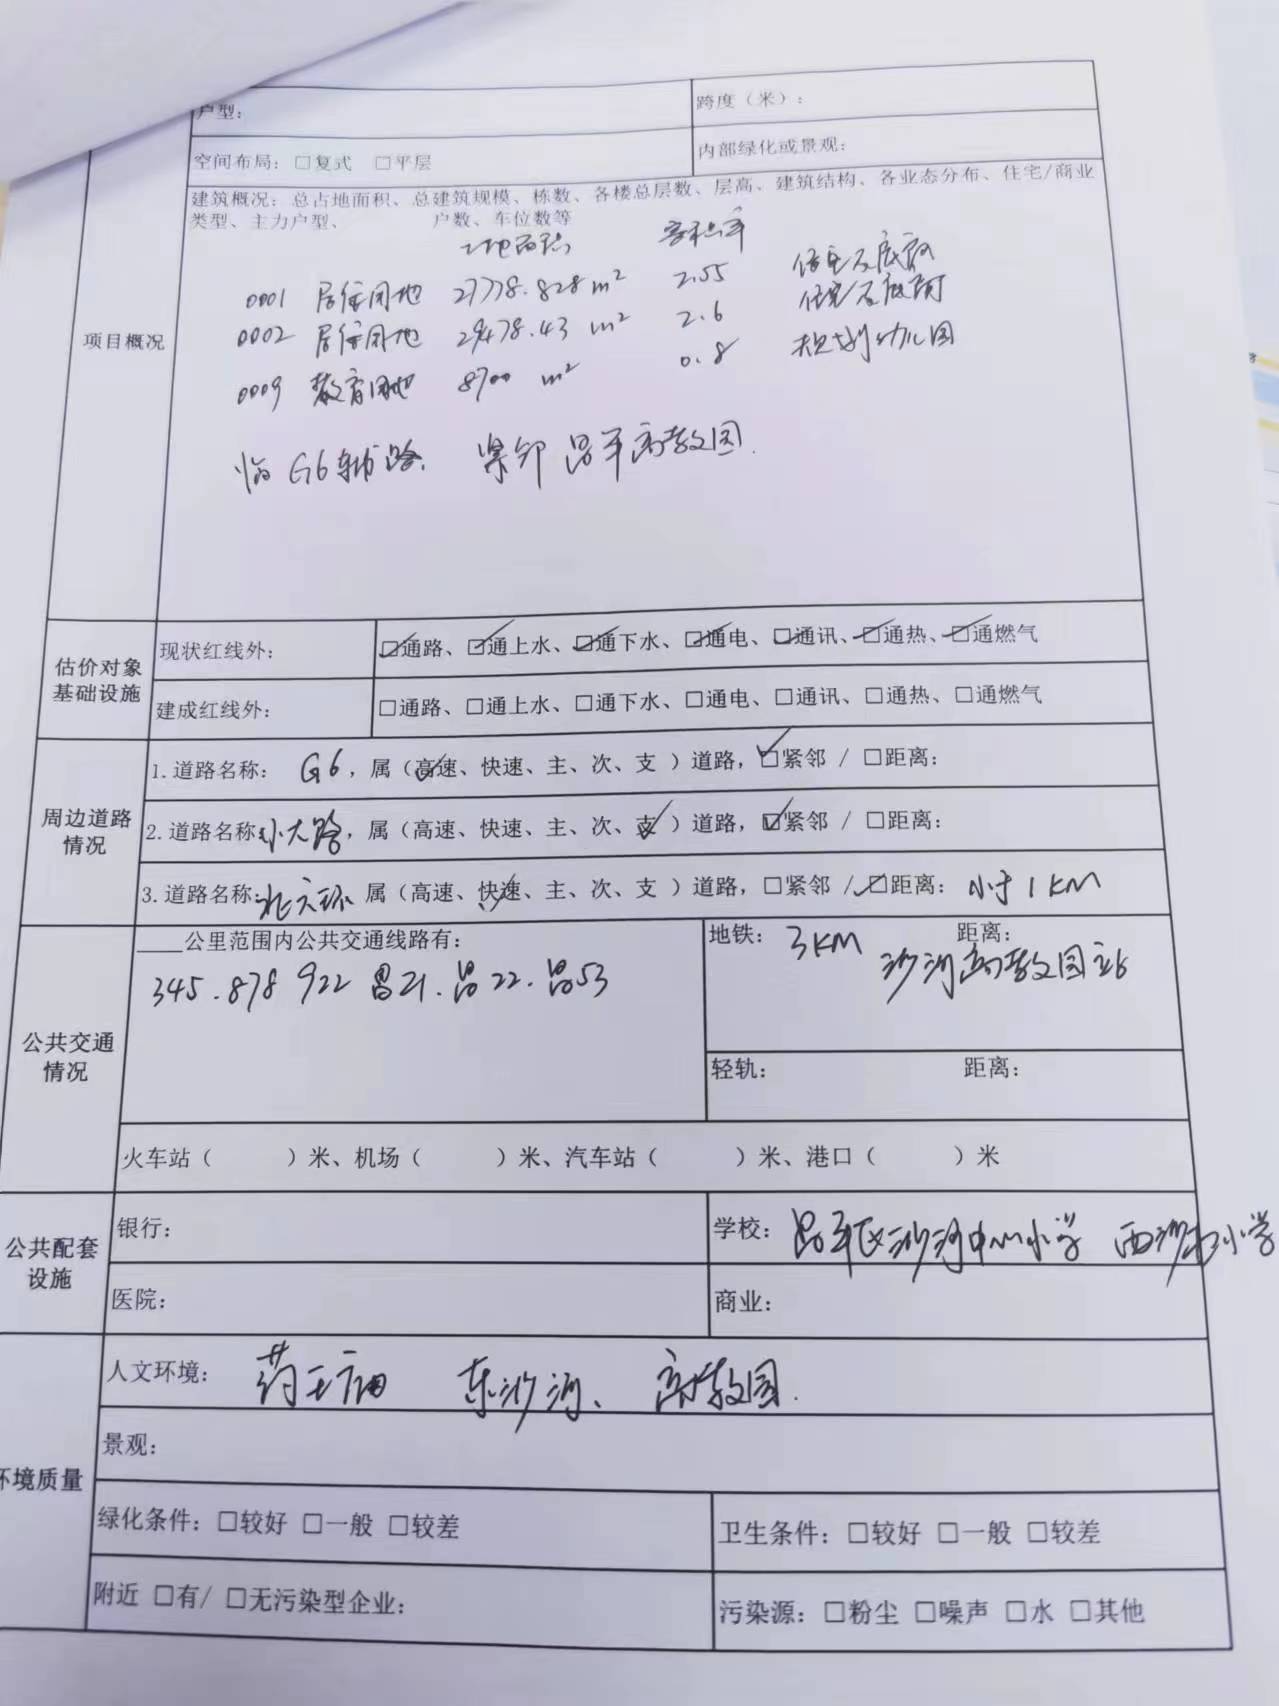 户型：
跨度（米）：
空间布局：□复式 □平层
内部绿化或景观：
项目概况
建筑概况：总占地面积、总建筑规模、栋数、各楼总层数、层高、建筑结构、各业态分布、住宅/商业
类型、主力户型、 户数、车位数等
土地面积 容积率
0001 居住用地 27778.828m² 2.55 住宅及底商
0002 居住用地 29478.43 m² 2.6 住宅及底商
0009 教育用地 8700 m² 0.8 规划幼儿园
临G6辅路、紧邻昌平高教园.
估价对象
基础设施
现状红线外：
☑通路、☑通上水、☑通下水、☑通电、☑通讯、☑通热、☑通燃气
建成红线外：
□通路、□通上水、□通下水、□通电、□通讯、□通热、□通燃气
周边道路
情况
1.道路名称： G6，属（高速、快速、主、次、支 ）道路，☑紧邻 / □距离：
2.道路名称：小大路，属（高速、快速、主、次、支 ）道路，☑紧邻 / □距离：
3.道路名称：北六环 属（高速、快速、主、次、支 ）道路，□紧邻 / ☑距离：小于1KM
公共交通
情况
____公里范围内公共交通线路有：
345.878 922 昌21.昌22.昌53
地铁： 3KM 距离：
沙河高教园站
轻轨： 距离：
火车站（ ）米、机场（ ）米、汽车站（ ）米、港口（ ）米
公共配套
设施
银行：
学校：昌平区沙河中心小学 西沙屯小学
医院：
商业：
环境质量
人文环境： 药王庙 东沙河、高教园.
景观：
绿化条件：□较好 □一般 □较差
卫生条件：□较好 □一般 □较差
附近 □有/ □无污染型企业：
污染源：□粉尘 □噪声 □水 □其他